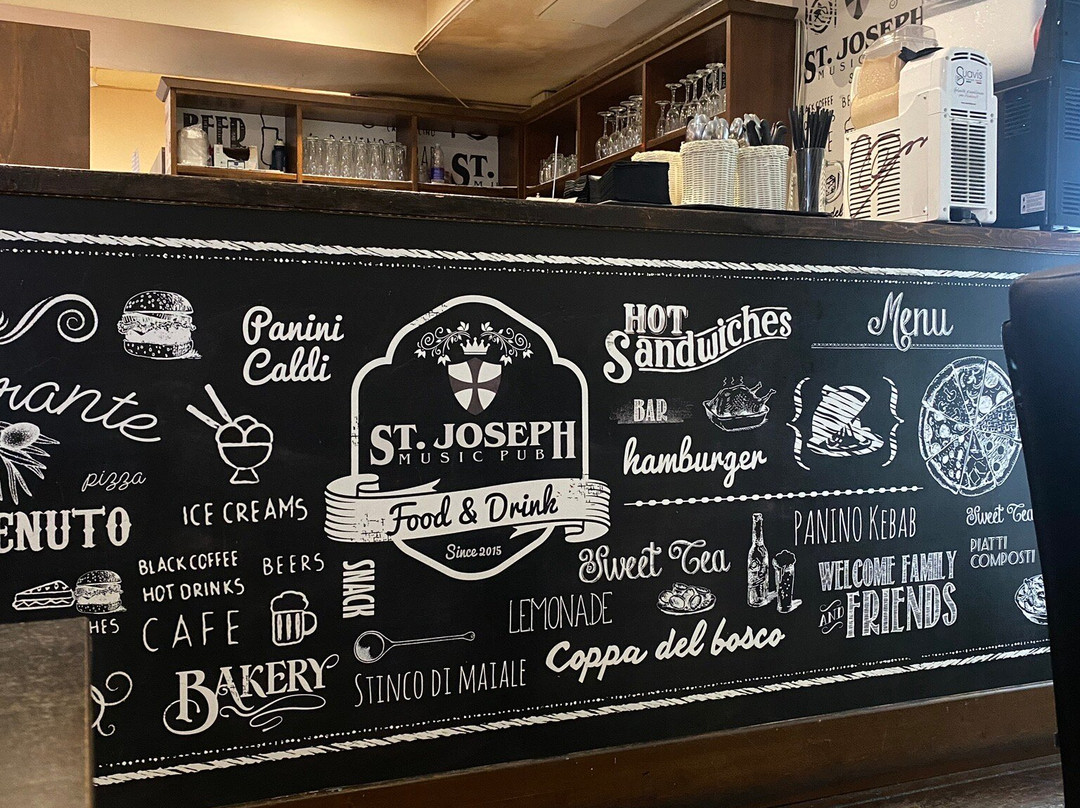 BEER
ST.
ST. JOSEPH
MUSIC
Suavis
Panini
Caldi
pizza
ICE CREAMS
BLACK COFFEE
HOT DRINKS
BEERS
CAFE
BAKERY
SNACK
ST. JOSEPH
MUSIC PUB
Food & Drink
Since 2015
STINCO DI MAIALE
HOT
Sandwiches
BAR
hamburger
Sweet Tea
LEMONADE
Coppa del bosco
Menu
PANINO KEBAB
WELCOME FAMILY
AND FRIENDS
Sweet Tea
PIATTI
COMPOSTI